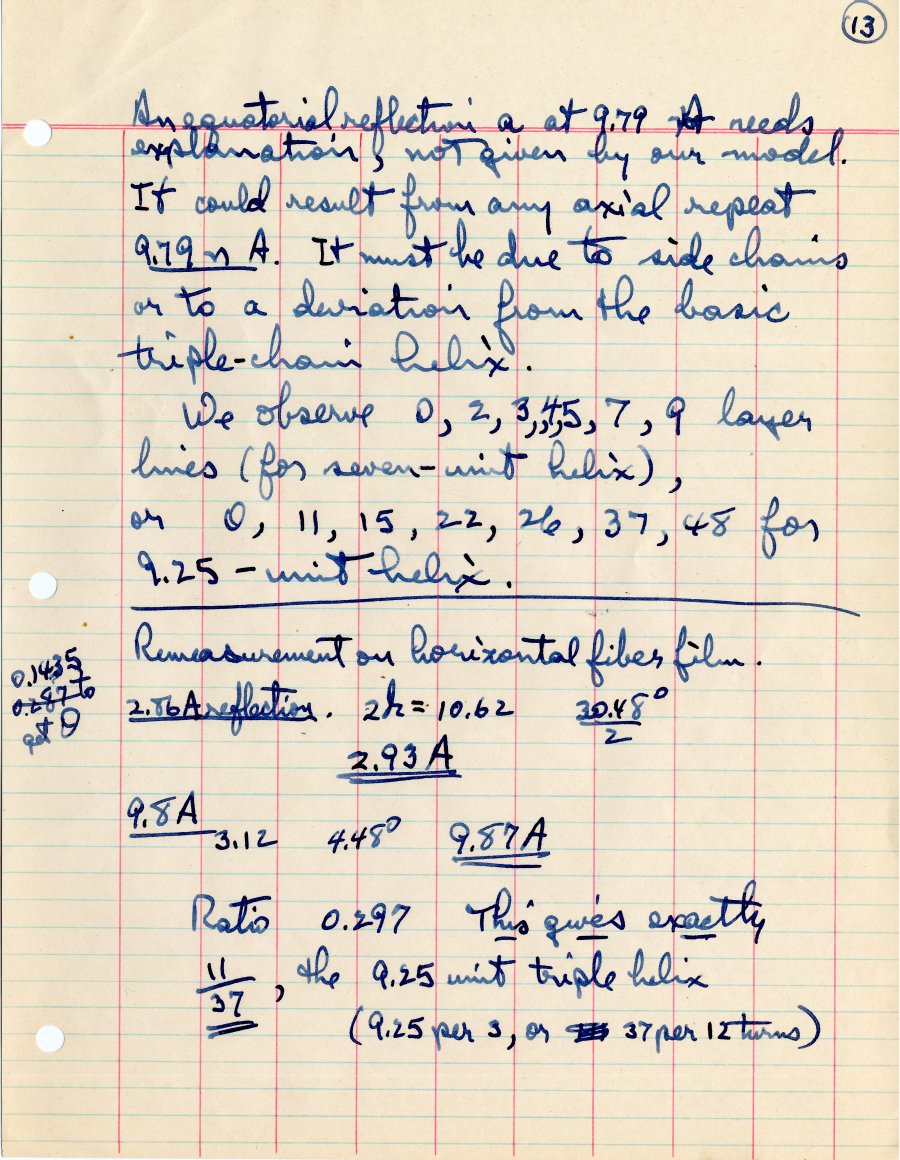 13
An equatorial reflection a at 9.79 A needs
explanation, not given by our model.
It could result from any axial repeat
9.79 n A. It must be due to side chains
or to a deviation from the basic
triple-chain helix.
We observe 0, 2, 3, 4, 5, 7, 9 layer
lines (for seven-unit helix),
or 0, 11, 15, 22, 26, 37, 48 for
9.25-unit helix.
Remeasurement on horizontal fiber film.
0.1435
0.287 to
get θ
2.86A reflection. 2h = 10.62 30.48°/2
2.93 A
9.8A
3.12 4.48° 9.87A
Ratio 0.297 This gives exactly
11/37, the 9.25 unit triple helix
(9.25 per 3, or 37 per 12 turns)